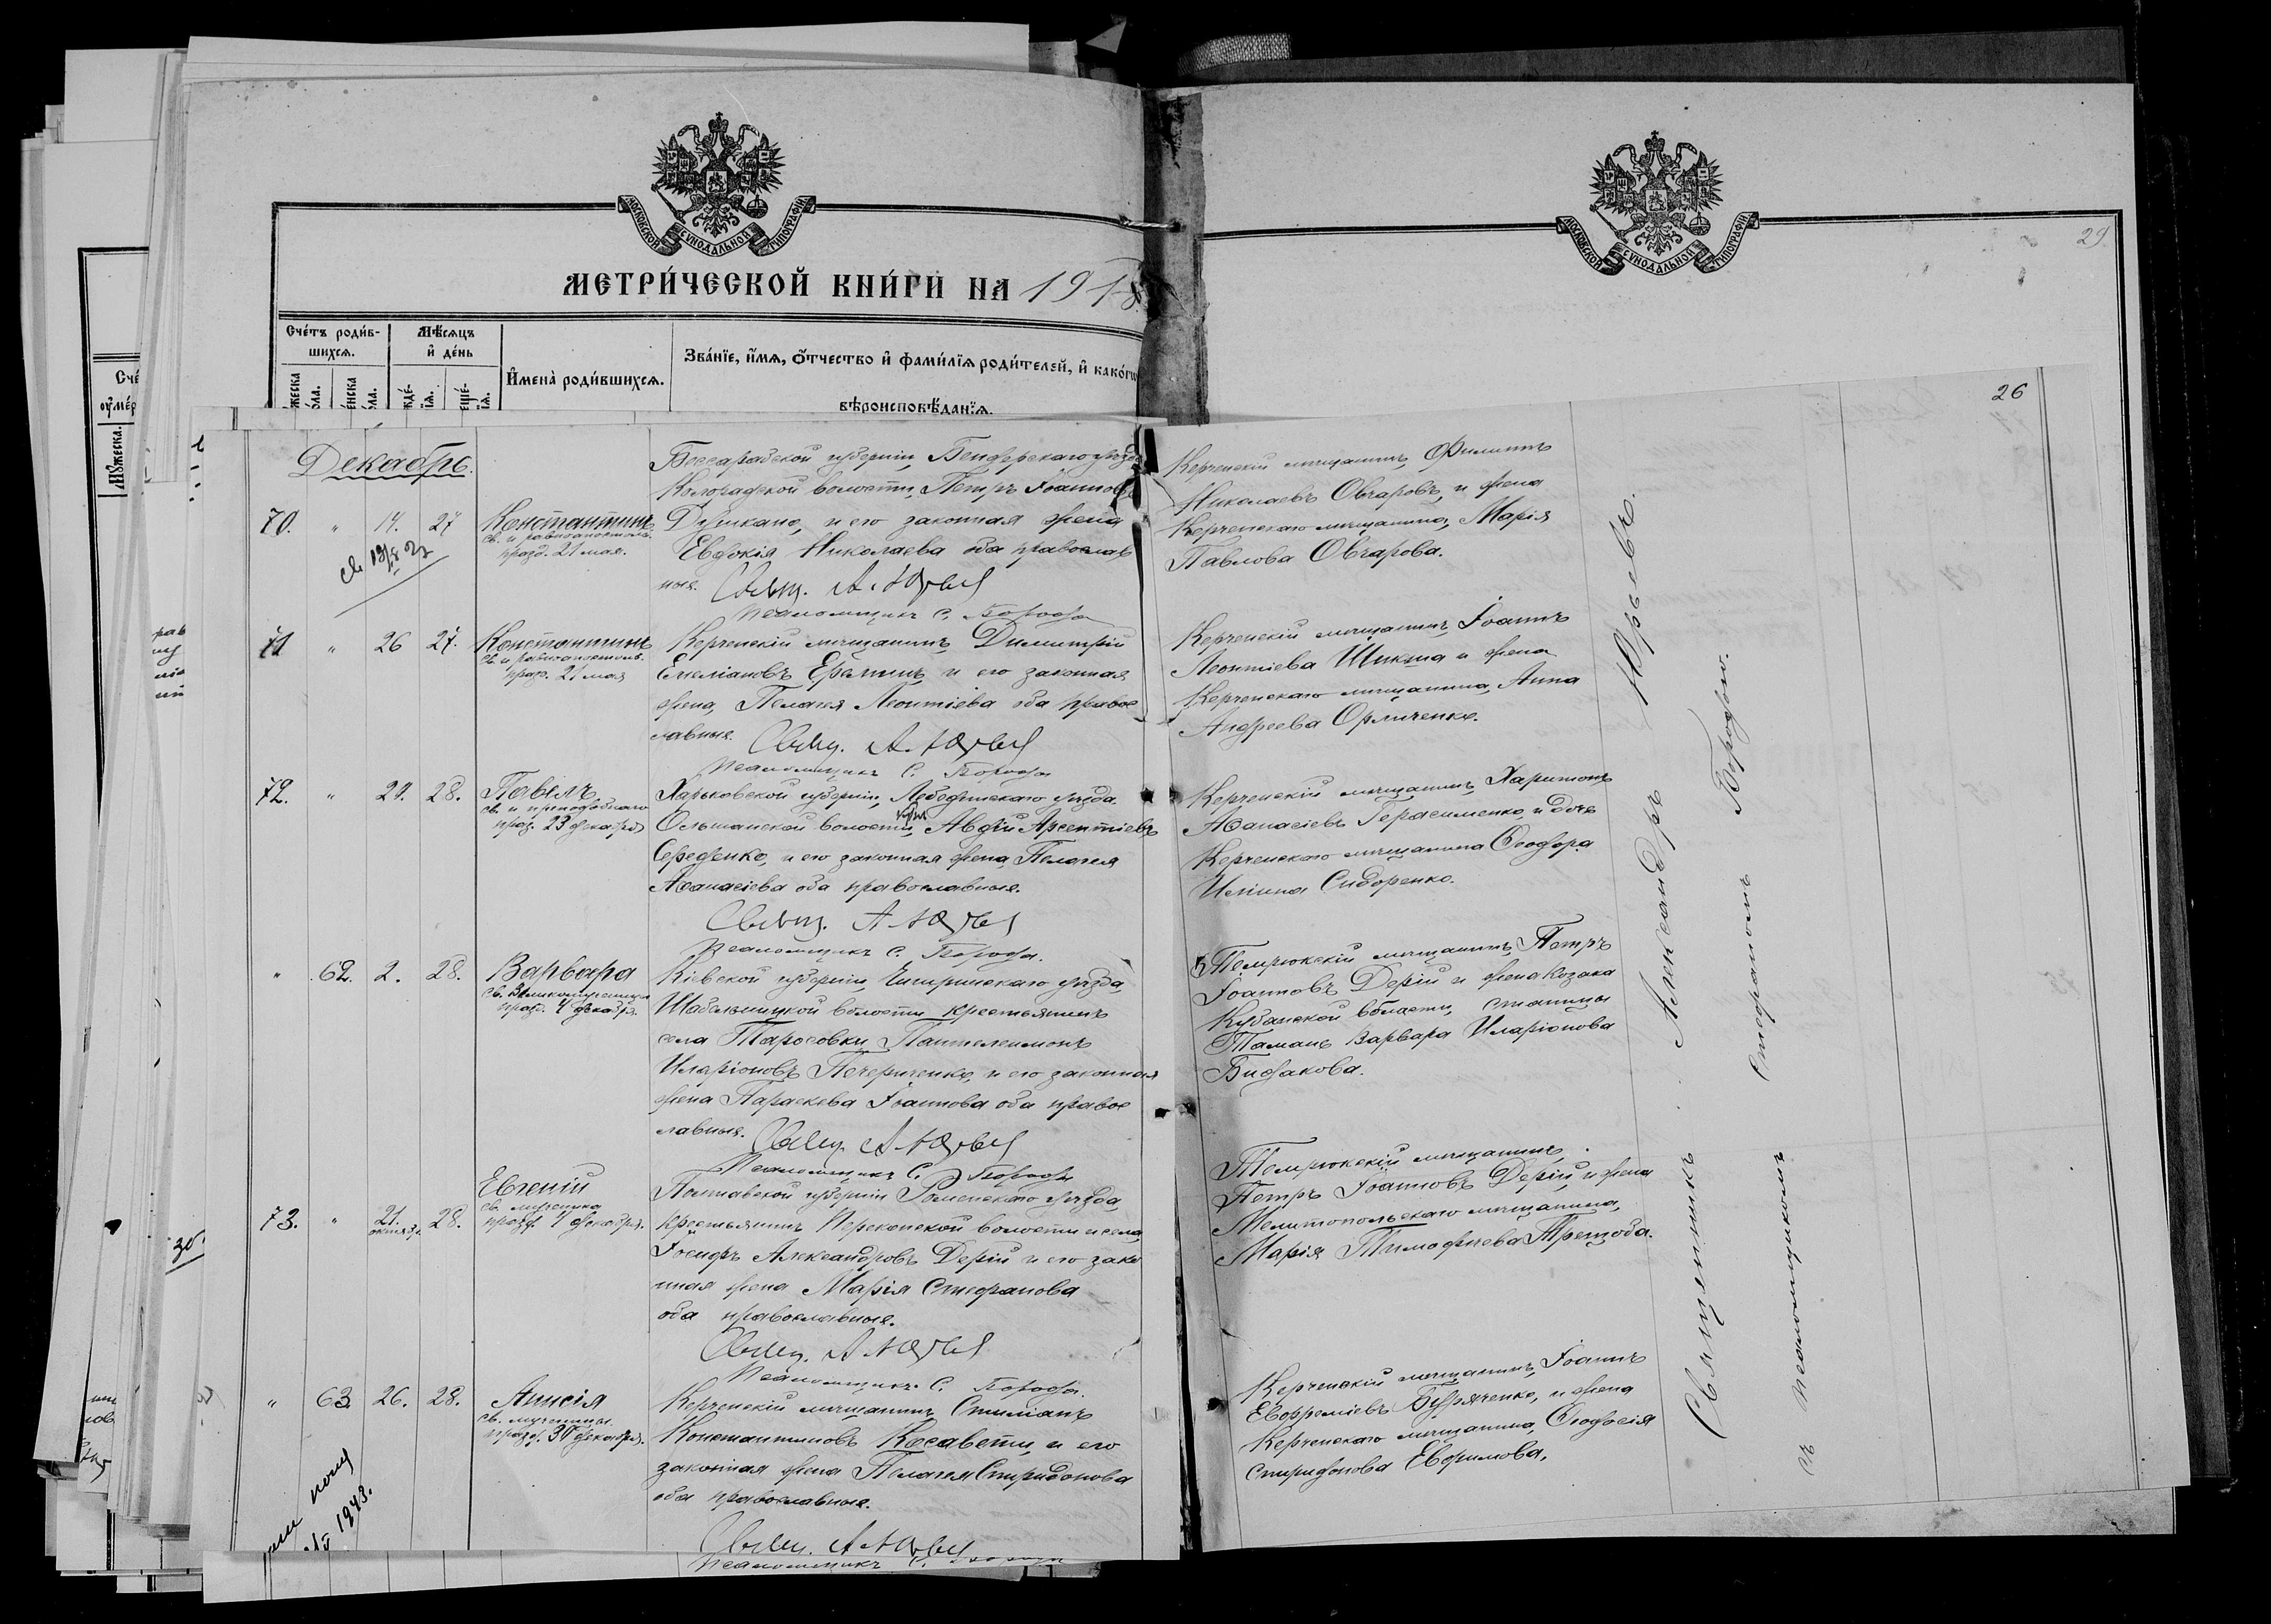 МОСКОВСКОЙ СУНОДАЛЬНОЙ ТИПОГРАФІИ
МЕТРИ́ЧЕСКОЙ КНИ́ГИ НА 1918
Сче́тъ роди́в-
шихсѧ.
Мѣ́сѧцъ
и҆ де́нь
И҆мена̀ роди́вшихсѧ.
Зва́нїе, и҆́мѧ, ѻ҆́тчество и҆ фами́лїѧ роди́телей, и҆ како́гѡ
вѣроисповѣ́данїѧ.
МОСКОВСКОЙ СУНОДАЛЬНОЙ ТИПОГРАФІИ
29.
26
Декабрь.
70. " 14. 27
Константинъ
св. и равноапостол.
празд. 21 мая.
Бессарабской губерніи, Бендерскаго уѣзда
волости, Петръ Іоанновъ
и его законная жена
Евдокія Николаева оба православ
ные. Свящ. А. Юрьев
Псаломщикъ С. Бородо
Керченскій мѣщанинъ, Филиппъ
Николаевъ Овчаровъ, и жена
Керченскаго мѣщанина, Марія
Павлова Овчарова.
71 " 26 27.
Константинъ
св. и равноапостол.
празд. 21 мая
Керченскій мѣщанинъ Димитрій
Емеліановъ Еремин, и его законная
жена, Пелагея Леонтіева оба право
лавные. Свящ. А. Юрьев
Псаломщикъ С. Бородо
Керченскій мѣщанинъ, Іоаннъ
Леонтіева Шикша и жена
Керченскаго мѣщанина, Анна
Андреева Орличенко.
72. " 29. 28.
Павелъ
св. и преподобнаго
праз. 23 декабря
Харьковской губерніи, Лебединскаго уѣзда
Ольшанской волости, Авдій Арсентіевъ
Середенко, и его законная жена, Пелагея
Аѳанасіева оба православные.
Свящ. А. Юрьев
Псаломщикъ С. Бородо.
Керченскій мѣщанинъ, Харитонъ
Аѳанасіевъ Герасименко, и дочь
Керченскаго мѣщанина Ѳеодора
Иліина Сидоренко.
" 62. 2. 28.
Варвара
св. Великомученицы
празд. 4 декабря.
Кіевской губерніи, Чигринскаго уѣзда,
Шабельницкой волости крестьянинъ
села Таросовки, Пантелеимонъ
Иларіоновъ Печериченко, и его законная
жена Параскева Іоаннова оба право
лавные. Свящ. А. Юрьев
Псаломщикъ С. Бородо
Темрюкскій мѣщанинъ, Петръ
Іоанновъ Дерій и жена козака
Кубанской области, станицы
Тамань Варвара Иларіонова
Бирзакова.
73. " 21. октября. 28.
Евгеній
св. мученика
празд. 4 декабря.
Полтавской губерніи Роменскаго уѣзда,
крестьянинъ Перекопской волости и села,
Іосифъ Александровъ Дерій и его зако
нная жена Марія Стефанова
оба православные.
Свящ. А. Юрьев
Псаломщикъ С. Бородо.
Темрюкскій мѣщанинъ,
Петръ Іоанновъ Дерій, и жена
Мелитопольскаго мѣщанина,
Марія Тимофѣева
" 63. 26. 28.
Анисія
св. мученицы.
празд. 30 декабря.
Керченскій мѣщанинъ, Стиліанъ
Константиновъ Косавети, и его
законная жена Пелагея Спиридонова
оба православные.
Свящ. А. Юрьев
Псаломщикъ С.
Керченскій мѣщанинъ, Іоаннъ
Евфреміевъ Бугряченко, и жена
Керченскаго мѣщанина, Ѳеодосія
Спиридонова Евфимова.
1943.
Священникъ Александръ Юрьевъ.
съ псаломщикомъ Стефаномъ Бородою.
30.